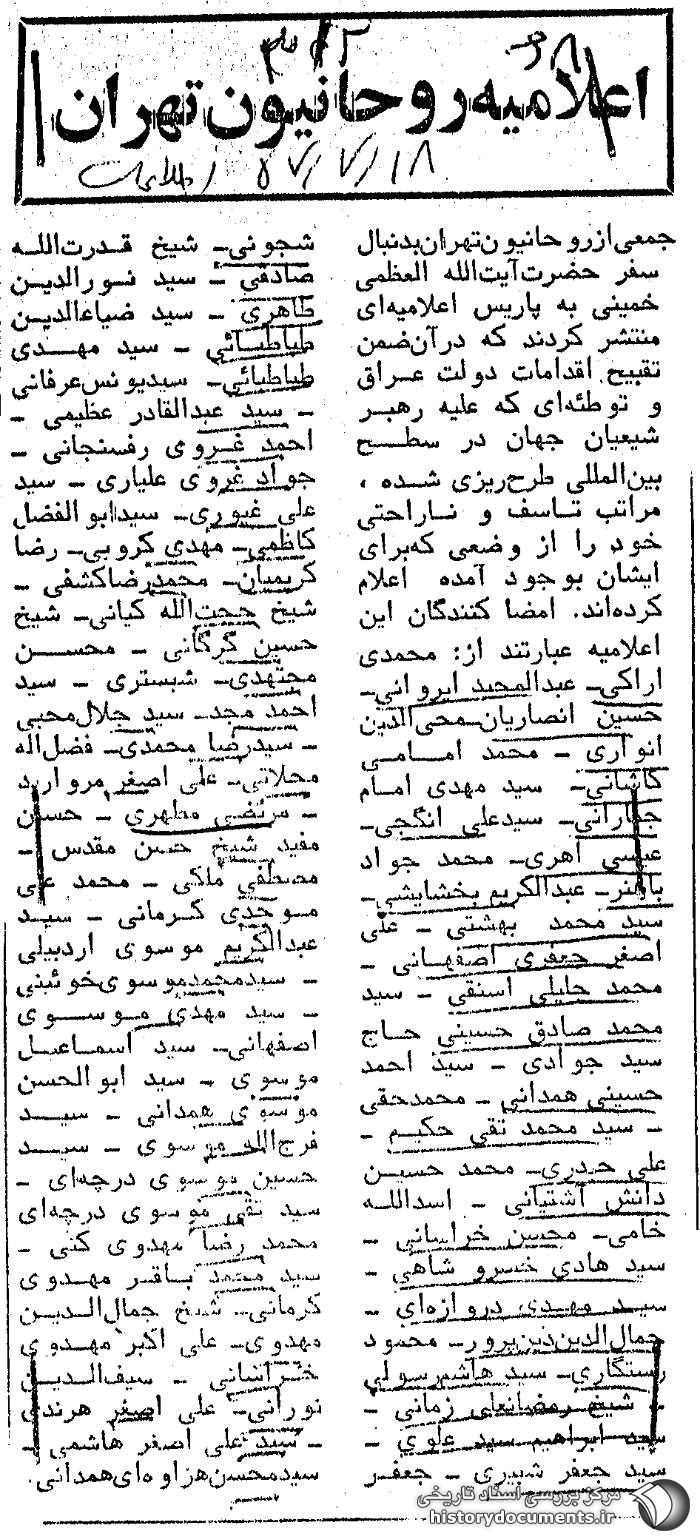 اعلامیه روحانیون تهران
۵۷/۷/۱۸ اطلاعات
جمعی از روحانیون تهران بدنبال
سفر حضرت آیت‌الله العظمی
خمینی به پاریس اعلامیه‌ای
منتشر کردند که در آن ضمن
تقبیح اقدامات دولت عراق
و توطئه‌ای که علیه رهبر
شیعیان جهان در سطح
بین‌المللی طرح‌ریزی شده ،
مراتب تاسف و ناراحتی
خود را از وضعی که برای
ایشان بوجود آمده اعلام
کرده‌اند. امضا کنندگان این
اعلامیه عبارتند از: محمدی
اراکی- عبدالمجید ایروانی-
حسین انصاریان- محی‌الدین
انواری - محمد امامی
کاشانی- سید مهدی امام
جمارانی- سیدعلی انگجی-
عیسی اهری- محمد جواد
باهنر- عبدالکریم بخشایشی-
سید محمد بهشتی - علی
اصغر جعفری اصفهانی -
محمد جلیلی اسنقی - سید
محمد صادق حسینی حاج
سید جوادی - سید احمد
حسینی همدانی - محمدحقی
- سید محمد تقی حکیم -
علی حیدری- محمد حسین
دانش آشتیانی - اسدالله
خامی- محسن خراسانی -
سید هادی خسرو شاهی -
سید مهدی دروازه‌ای -
جمال‌الدین دین‌پرور- محمود
رستگاری- سید هاشم رسولی
- شیخ رمضانعلی زمانی -
سید ابراهیم سید علوی -
سید جعفر شبیری - جعفر
شجونی- شیخ قدرت‌الله
صادقی - سید نورالدین
طاهری - سید ضیاءالدین
طباطبائی - سید مهدی
طباطبائی- سیدیونس عرفانی
- سید عبدالقادر عظیمی -
احمد غروی رفسنجانی -
جواد غروی علیاری - سید
علی غیوری- سیدابوالفضل
کاظمی- مهدی کروبی- رضا
کریمیان- محمدرضا کشفی -
شیخ حجت‌الله کیانی- شیخ
حسین گرگانی - محسن
مجتهدی- شبستری - سید
احمد مجد- سید جلال محبی
- سیدرضا محمدی- فضل‌اله
محلاتی- علی اصغر مروارید
- مرتضی مطهری - حسن
مفید شیخ حسن مقدس -
مصطفی ملکی - محمد علی
موحدی کرمانی - سید
عبدالکریم موسوی اردبیلی
- سیدمحمدموسوی‌خوئینی
- سید مهدی موسوی
اصفهانی- سید اسماعیل
موسوی - سید ابوالحسن
موسوی همدانی - سید
فرج‌الله موسوی - سید
حسین موسوی درچه‌ای -
سید تقی موسوی درچه‌ای
محمد رضا مهدوی کنی -
سید محمد باقر مهدوی
کرمانی- شیخ جمال‌الدین
مهدوی- علی اکبر مهدوی
خراسانی - سیف‌الدین
نورانی- علی اصغر هرندی
- سید علی اصغر هاشمی -
سیدمحسن هزاوه‌ای همدانی.
مرکز بررسی اسناد تاریخی
historydocuments.ir